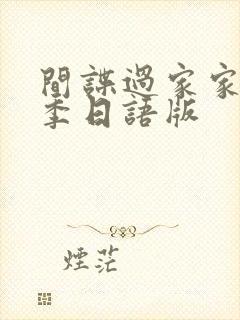 間諜過家家
季日語版
煙茫